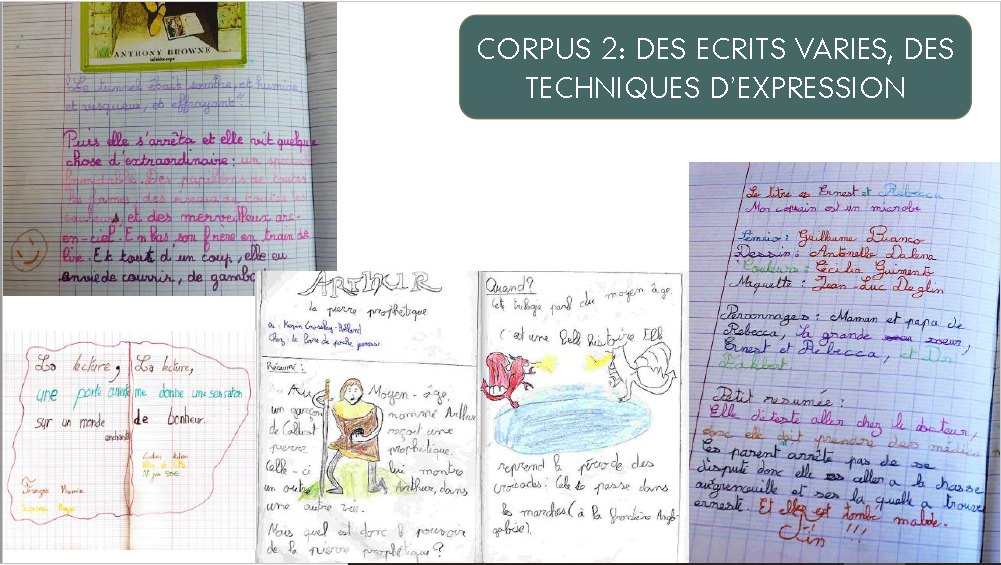 CORPUS 2: DES ECRITS VARIES, DES
TECHNIQUES D'EXPRESSION
ANTHONY BROWNE
"Le tunnel était sombre, et humide,
et visqueux, et effrayant".
Puis elle s'arrêta et elle vit quelque
chose d'extraordinaire: un spectacle
formidable. Des papillons de toutes
les formes, des oiseaux de toutes les
couleurs, et des merveilleux arc-
en-ciel. En bas son frère en train de
lire. Et tout d'un coup, elle eu
envie de courrir, de gamba
La lecture,
une porte ouverte
sur un monde
enchanté
La lecture,
me donne une sensation
de bonheur.
ARTHUR
la pierre prophétique
de: Kevin Crossley-Holland
Chez: le livre de poche jeunesse
Résumé:
Au Moyen-âge,
un garçon nommé Arthur
de Caldicot reçoit une
pierre prophétique.
Celle-ci lui montre
un autre Arthur, dans
une autre vie.
Mais quel est donc le pouvoir
de la pierre prophétique?
Quand?
Cette trilogie parle du moyen âge,
c'est une belle histoire. Elle
reprend la période des
croisades. Cela se passe dans
les marches (à la frontière Anglo-
galoise).
Le titre es Ernest et Rebecca
Mon copain est un microbe
Sénario: Guillaume Bianco
Dessin: Antonello Dalena
Couleurs: Cecilia Giumento
Maquette: Jean-Luc Deglin
Personnages: Maman et papa de
Rebecca, la grande soeur,
Ernest et Rebecca, et Dr.
Fakbert
Petit resumée:
Elle déteste aller chez le docteur,
donc elle doit prendre des médic
Les parent arrête pas de se
disputé donc elle aller a la chasse
au grenouille et ses la quelle a trouve
erneste. Et elle est tombé malade.
Fin !!!